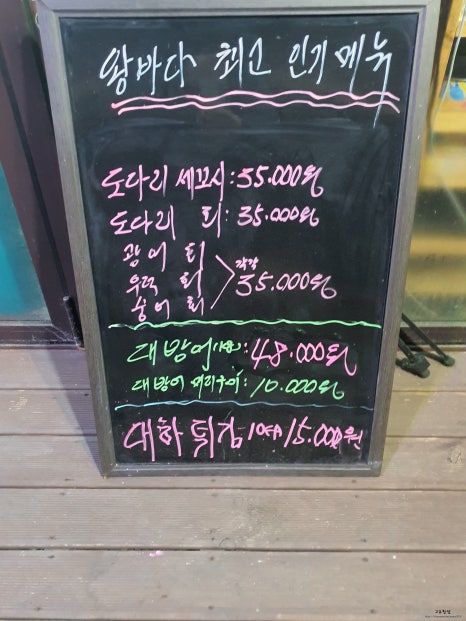 왕바다 최고 인기메뉴
도다리 세꼬시: 35.000원
도다리 회: 35.000원
광어 회
우럭 회 각각 35.000원
숭어 회
대방어(사분): 48.000원
대방어 머리구이: 10.000원
대하 튀김 10마리 15.000원